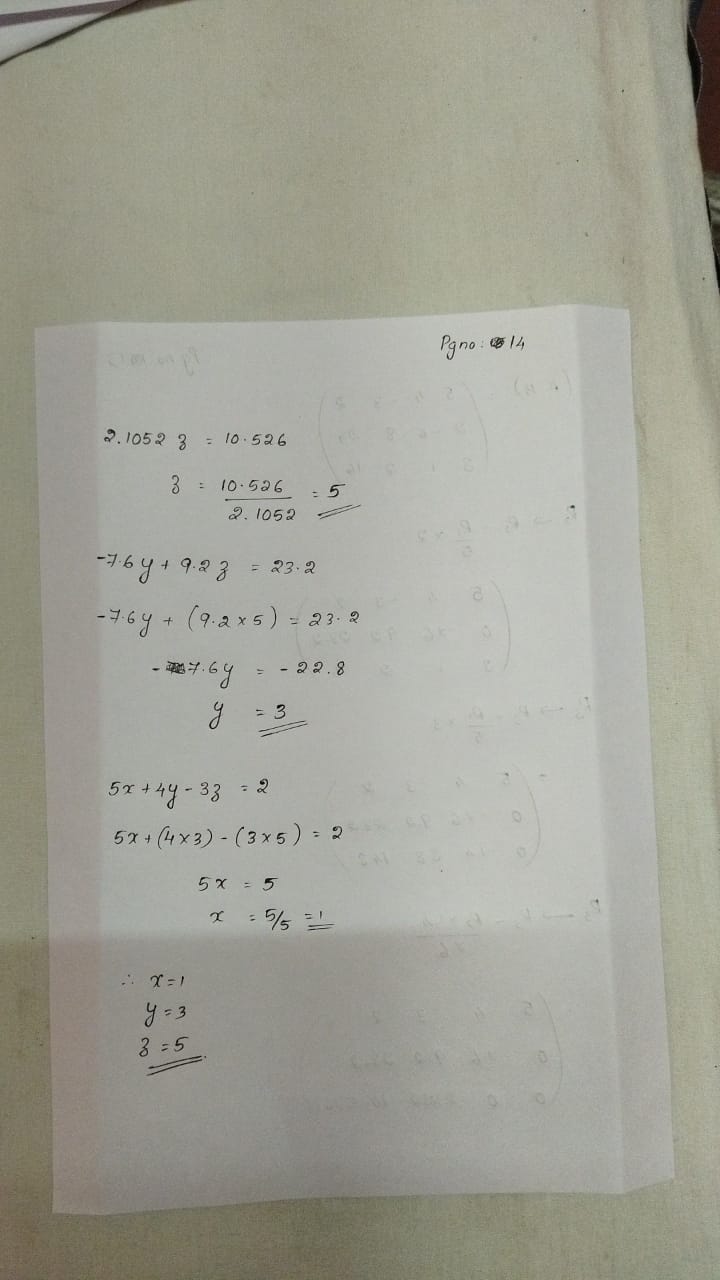 Pg no: 14
2.1052 z = 10.526
z = 10.526 / 2.1052 = 5
-7.6y + 9.2z = 23.2
-7.6y + (9.2 x 5) = 23.2
-7.6y = -22.8
y = 3
5x + 4y - 3z = 2
5x + (4x3) - (3x5) = 2
5x = 5
x = 5/5 = 1
∴ x = 1
y = 3
z = 5